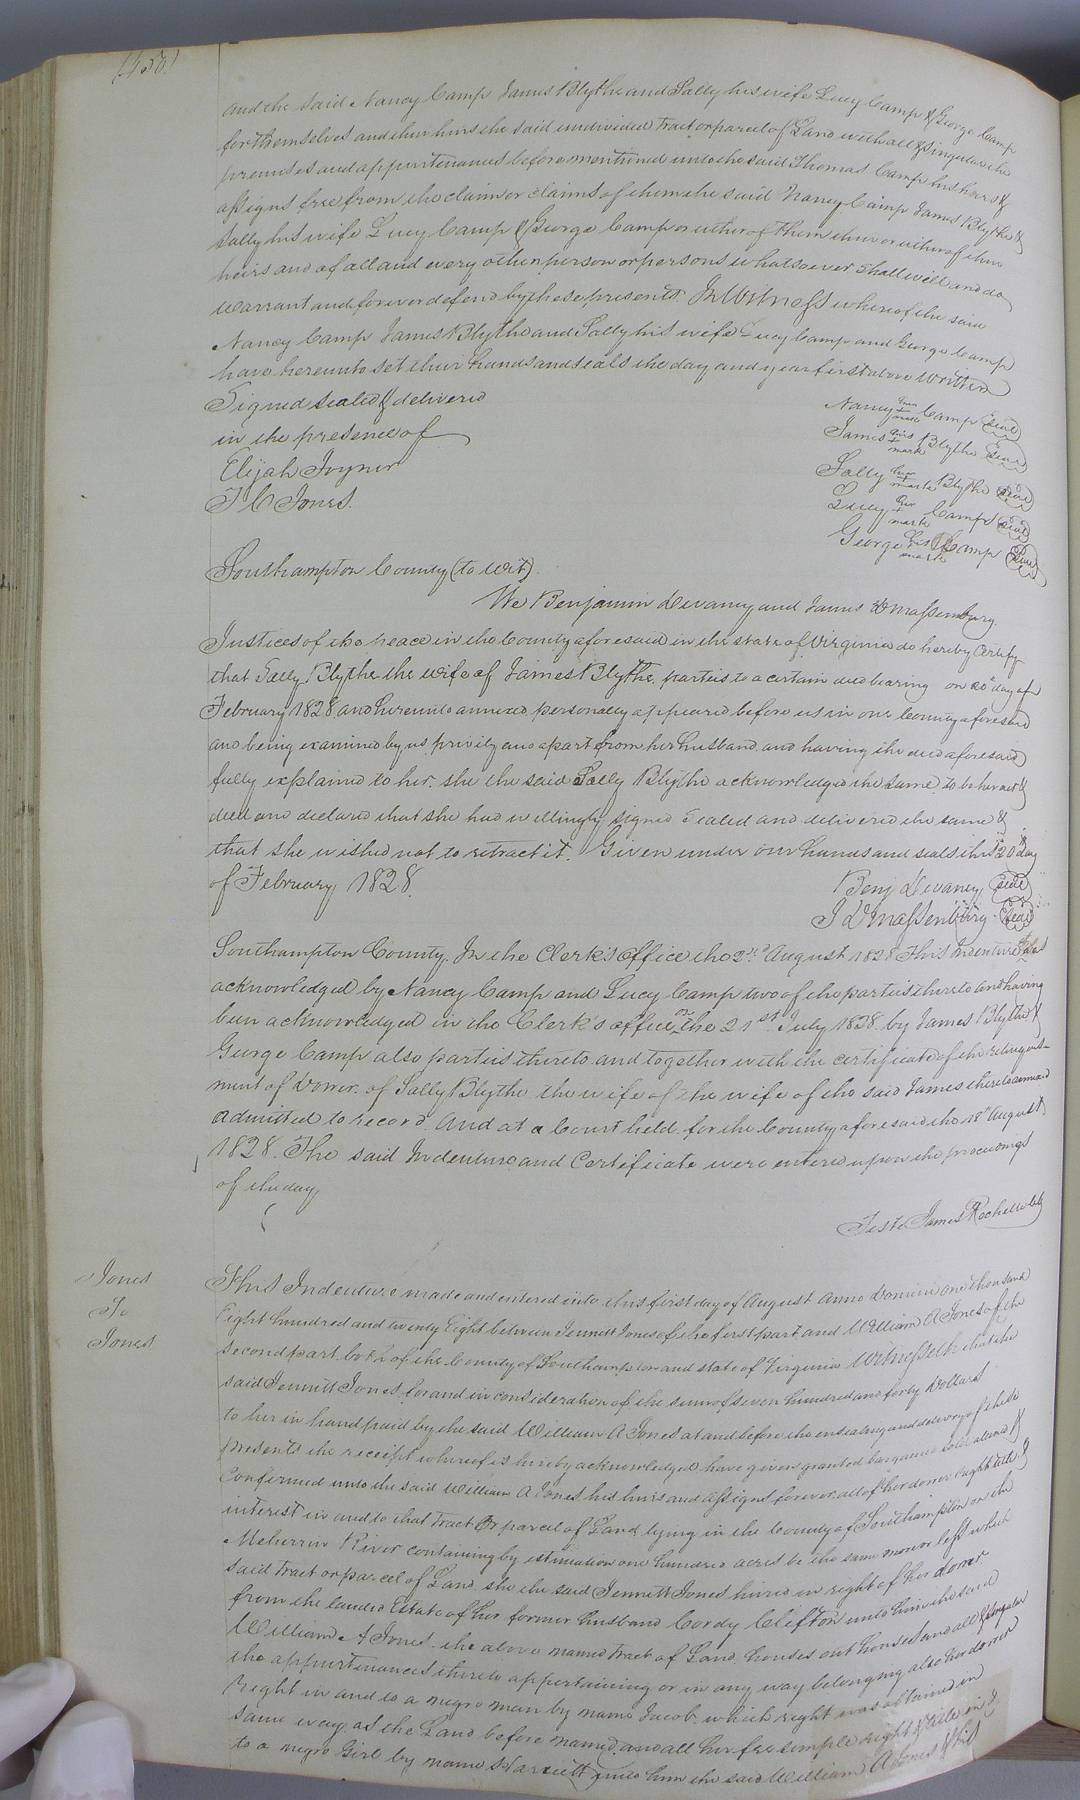 (458)
and the said Nancy Camp James Blythe and Sally his wife Lucy Camp & George Camp
for themselves and their heirs the said undivided tract or parcel of Land with all & singular the
premises and appurtenances before mentioned unto the said Thomas Camp his heirs &
assigns free from the claim or claims of them the said Nancy Camp James Blythe &
Sally his wife Lucy Camp & George Camp or either of them their or either of their
heirs and of all and every other person or persons whatsoever shall will and do
warrant and forever defend by these presents. In Witness whereof the said
Nancy Camp James Blythe and Sally his wife Lucy Camp and George Camp
have hereunto set their hands and seals the day and year first above written
Signed sealed & delivered
in the presence of
Elijah Joyner
J C Jones.
Nancy her + mark Camp Seal
James his + mark Blythe Seal
Sally her + mark Blythe Seal
Lucy her + mark Camp Seal
George his + mark Camp Seal
Southampton County (to wit)
We Benjamin Devaney and James D Massenburg
Justices of the peace in the County aforesaid in the state of Virginia do hereby Certify
that Sally Blythe the wife of James Blythe parties to a certain deed bearing on 20th day of
February 1828 and hereunto annexed personally appeared before us in our County aforesaid
and being examined by us privily and apart from her husband and having the deed aforesaid
fully explained to her. she the said Sally Blythe acknowledged the same to be her act &
deed and declared that she had willingly signed Sealed and delivered the same &
that she wished not to retract it. Given under our hands and seals this 20 day
of February 1828.
Benj Devaney Seal
J D Massenburg Seal
Southampton County. In the Clerk's Office the 2nd August 1828 This Indenture was
acknowledged by Nancy Camp and Lucy Camp two of the parties thereto and having
been acknowledged in the Clerk's office on the 21st July 1828 by James Blythe &
George Camp also parties thereto and together with the certificate of the relinquish
ment of Dower of Sally Blythe the wife of the wife of the said James thereto annexed
admitted to record. And at a Court held for the County aforesaid the 18th August
1828. The said Indenture and Certificate were entered upon the proceedings
of the day
Teste James Rochelle Clk
Jones
To
Jones
This Indenture made and entered into this first day of August Anno Domini one thousand
Eight hundred and twenty Eight between Jennett Jones of the first part and William A Jones of the
second part both of the County of Southampton and state of Virginia Witnesseth that the
said Jennett Jones for and in consideration of the sum of seven hundred and forty Dollars
to her in hand paid by the said William A Jones at and before the ensealing and delivery of these
presents the receipt whereof is hereby acknowledged have given granted bargained sold aliened &
Confirmed unto the said William A Jones his heirs and assigns forever all of her dower right title &
interest in and to that tract or parcel of Land lying in the County of Southampton on the
Meherrin River containing by estimation one hundred acres be the same more or less which
said tract or parcel of Land she the said Jennett Jones hired in right of her dower
from the landed Estate of her former husband Cordy Clifton unto him the said
William A Jones the above named tract of Land houses out houses and all & singular
the appurtenances thereto appertaining or in any way belonging also her dower
Right in and to a negro man by name Jacob which right was obtained in
same way as the Land before named, and all her fee simple right & title in &
to a negro Girl by name Harriett unto him the said William A Jones & his